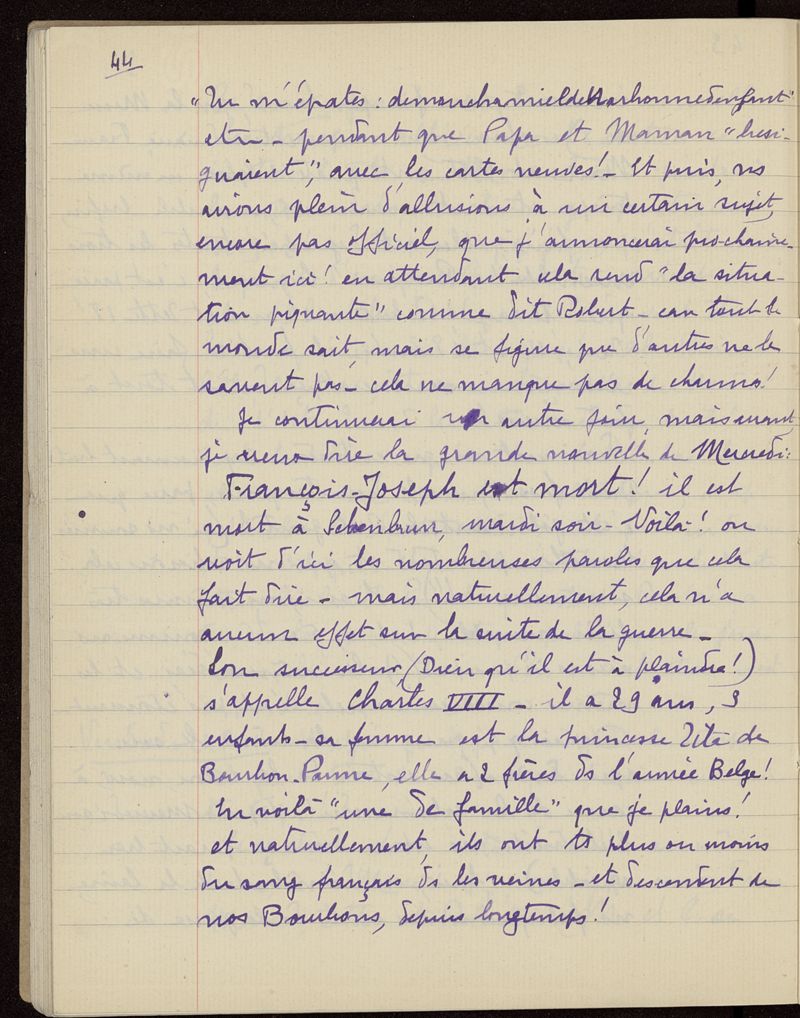 44
"Tu m'épates : demonchamieldeNarbonnedenfant"
etc - pendant que Papa et Maman "besi-
guaient", avec les cartes neuves ! - Et puis, ns
avions plein d'allusions à un certain sujet,
encore pas officiel, que j'annoncerai prochaine-
ment ici ! en attendant cela rend "la situa-
tion piquante" comme dit Robert - car tout le
monde sait, mais se figure que d'autres ne le
savent pas - cela ne manque pas de charme !
Je continuerai un autre jour, mais avant,
je veux dire la grande nouvelle de Mercredi :
François-Joseph est mort ! il est
mort à Schenbrun, mardi soir - Voilà ! on
voit d'ici les nombreuses paroles que cela
fait dire - mais naturellement, cela n'a
aucun effet sur la suite de la guerre -
Son successeur (Dieu qu'il est à plaindre !)
s'appelle Charles VIIII - il a 29 ans, 3
enfants - sa femme est la princesse Zita de
Bourbon-Parme, elle a 2 frères ds l'armée Belge !
En voilà "une de famille" que je plains !
et naturellement, ils ont ts plus ou moins
du sang français ds les veines - et descendent de
nos Bourbons, depuis longtemps !